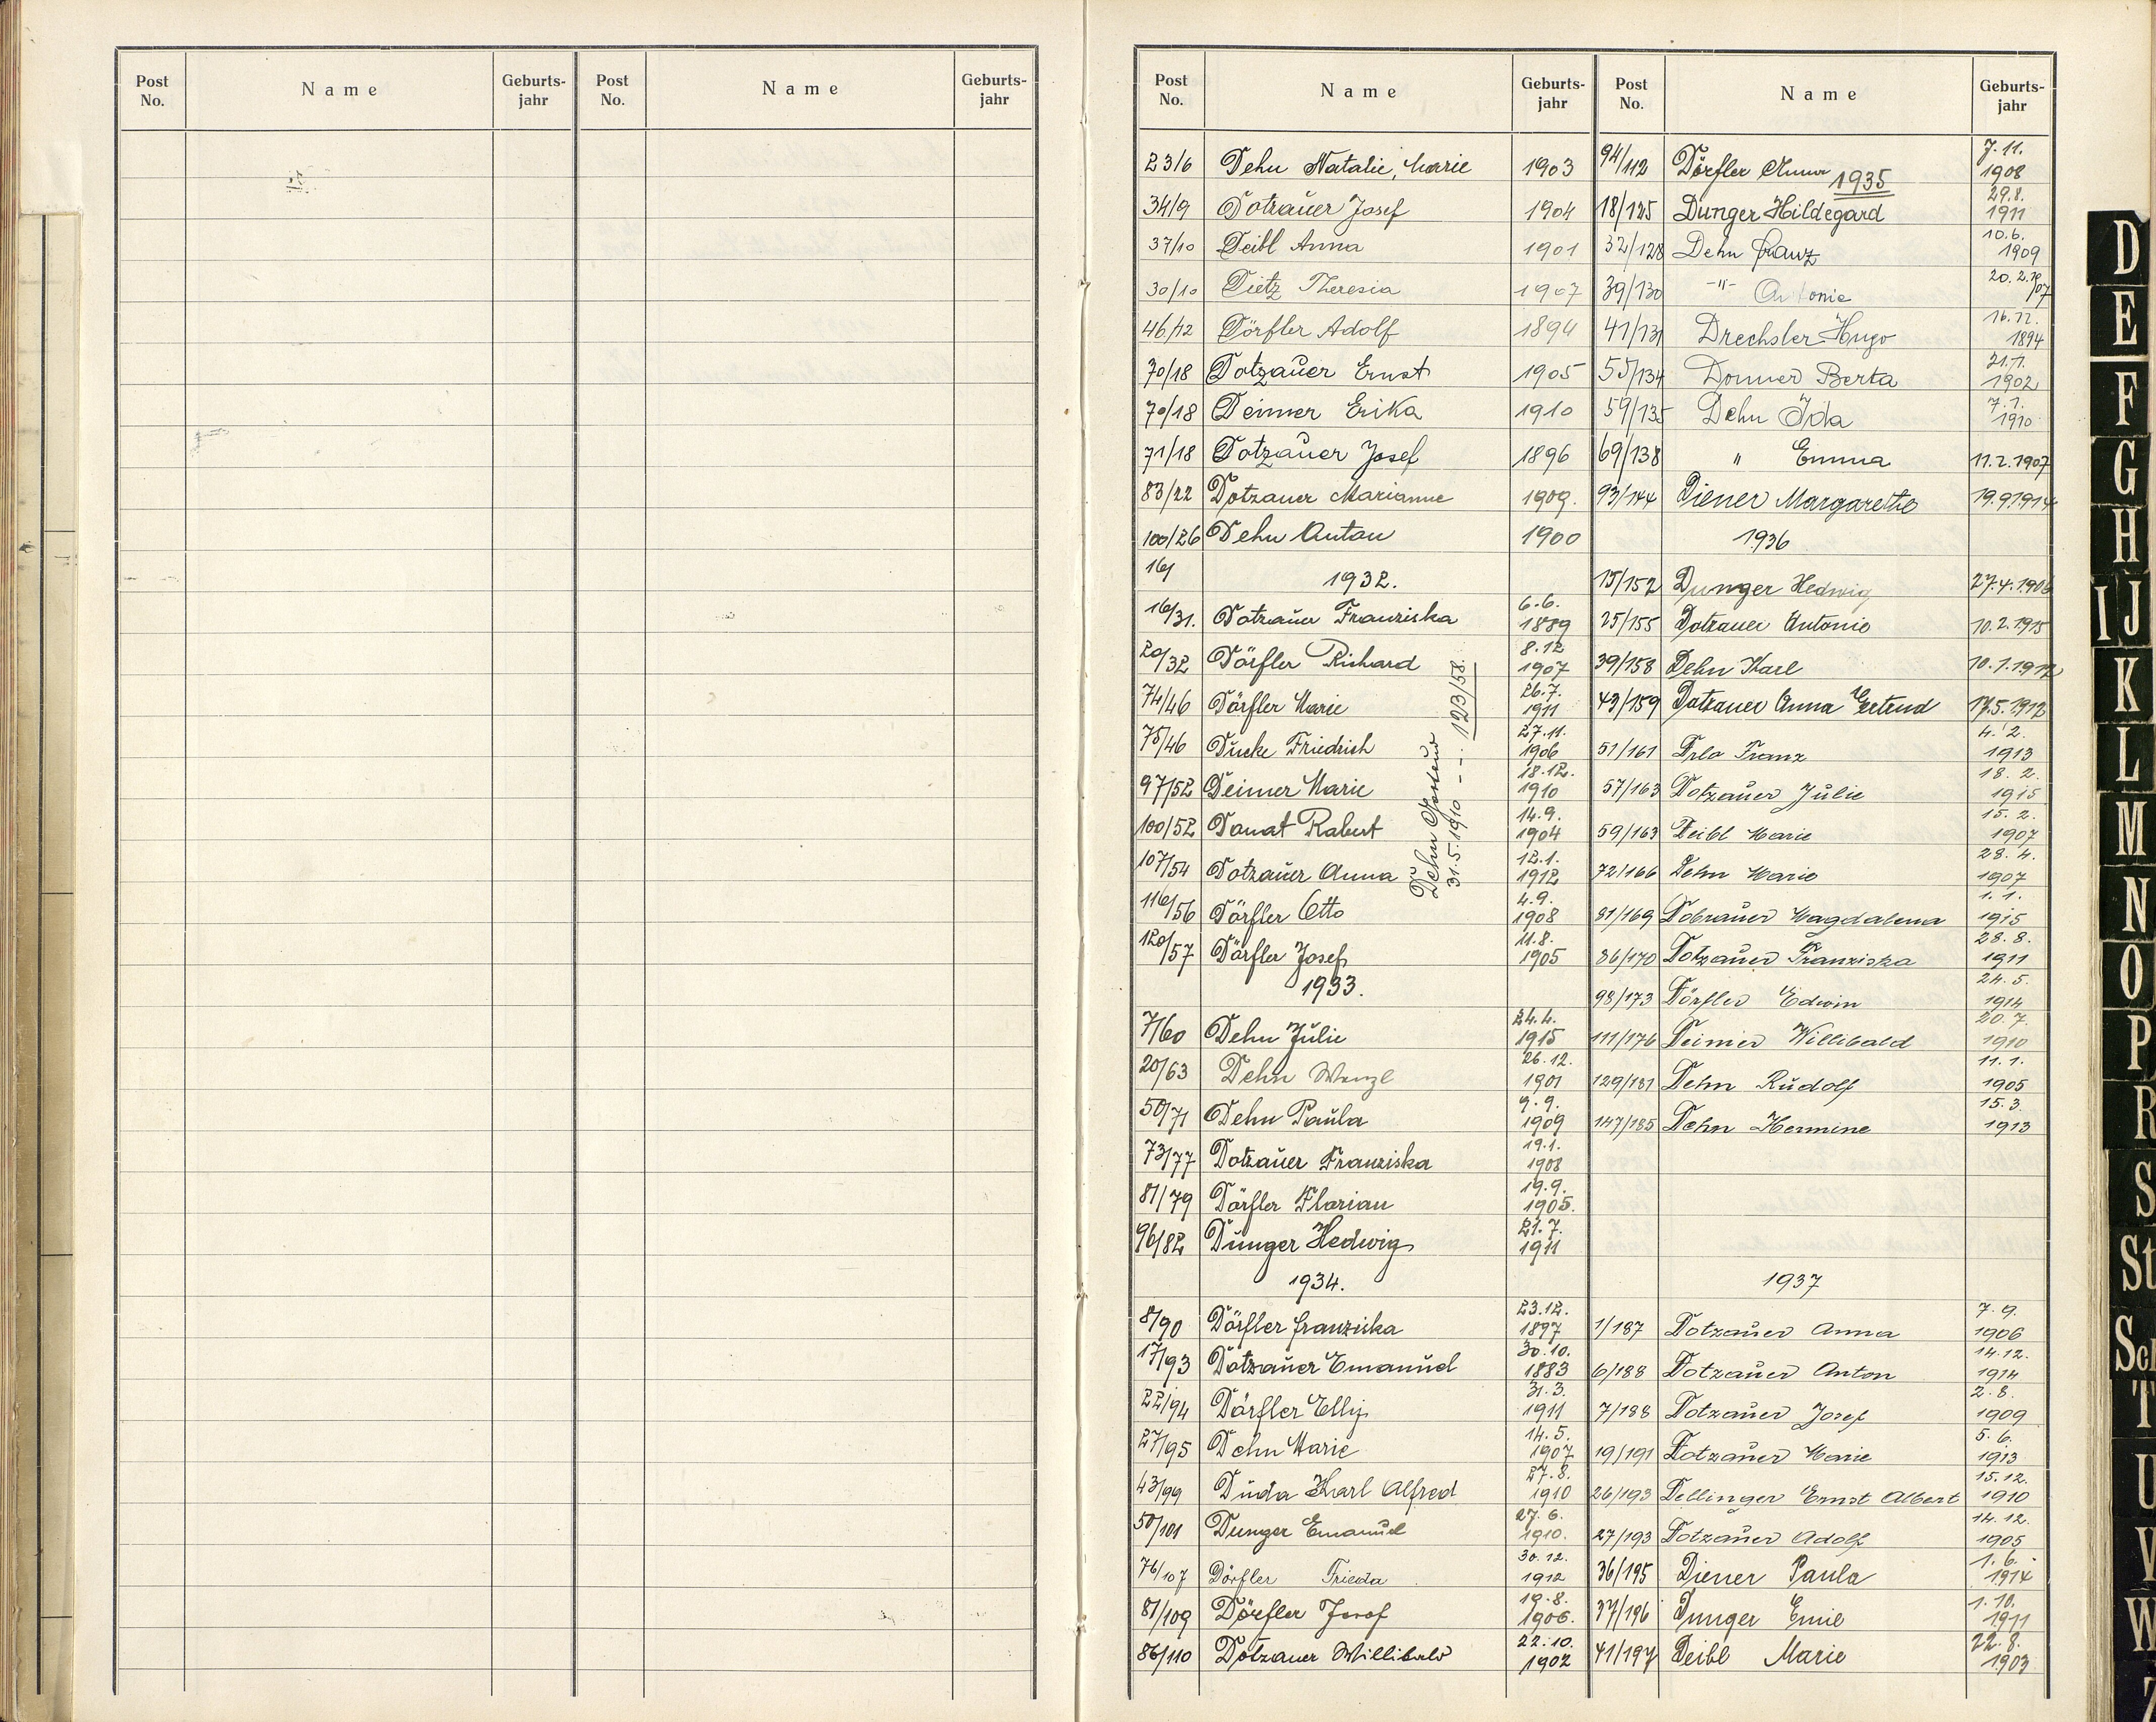 Post No. Name Geburts-jahr Post No. Name Geburts-jahr
Post No. Name Geburts-jahr
23/6 Dehn Natalie, Marie 1903
34/9 Dotzauer Josef 1904
37/10 Deibl Anna 1901
30/10 Dietz Theresia 1907
46/12 Dörfler Adolf 1894
70/18 Dotzauer Ernst 1905
70/18 Deimer Erika 1910
71/18 Dotzauer Josef 1896
83/22 Dotzauer Marianne 1909.
100/26 Dehn Anton 1900
16/
1932.
16/31. Dotzauer Franziska 6.6. 1889
20/32 Dörfler Richard 8.12 1907
74/46 Dörfler Marie 26.7. 1911
75/46 Ducke Friedrich 27.11. 1906
97/52 Deimer Marie 18.12. 1910
100/52 Donat Robert 14.9. 1904
107/54 Dotzauer Anna 12.1. 1912
116/56 Dörfler Otto 4.9. 1908
120/57 Dörfler Josef 11.8. 1905
Dehn
31.5.1910 --- 123/58.
1933.
7/60 Dehn Julie 24.4. 1915
20/63 Dehn Wenzl 26.12. 1901
50/71 Dehn Paula 9.9. 1909
73/77 Dotzauer Franziska 19.1. 1908
81/79 Dörfler Florian 19.9. 1905.
96/82 Dunger Hedwig 21.7. 1911
1934.
8/90 Dörfler Franziska 23.12. 1897
17/93 Dotzauer Emanuel 30.10. 1883
22/94 Dörfler Elly 31.3. 1911
27/95 Dehn Marie 14.5. 1907
43/99 Duda Karl Alfred 27.8. 1910
50/101 Dunger Emanuel 27.6. 1910.
76/107 Dörfler Frieda 30.12. 1912
81/109 Dörfler Josef 19.8. 1906.
86/110 Dotzauer Willibald 22.10. 1902
Post No. Name Geburts-jahr
94/112 Dörfler Anna 7.11. 1908
1935
18/125 Dunger Hildegard 29.8. 1911
32/128 Dehn Franz 10.6. 1909
39/130 -"- Antonie 20.2.19/07
41/131 Drechsler Hugo 16.12. 1894
55/134 Donner Berta 21.11. 1902
59/135 Dehn Ida 7.1. 1910
69/138 " Emma 11.2.1907
93/144 Diener Margarethe 19.9.1914
1936
15/152 Dunger Hedwig 27.4.1906
25/155 Dotzauer Antonie 10.2.1915
39/158 Dehn Karl 10.1.1912
43/159 Dotzauer Anna Gertrud 17.5.1912
51/161 Franz 4.2. 1913
57/163 Dotzauer Julie 18.2. 1915
59/163 Deibl Marie 15.2. 1907
72/166 Dehn Marie 28.4. 1907
81/169 Magdalena 1.1. 1915
86/170 Dotzauer Franziska 28.8. 1911
98/173 Dörfler Edwin 24.5. 1914
111/176 Deimer Willibald 20.7. 1910
129/181 Dehn Rudolf 11.1. 1905
147/185 Dehn Hermine 15.3. 1913
1937
1/187 Dotzauer Anna 7.9. 1906
6/188 Dotzauer Anton 14.12. 1914
7/188 Dotzauer Josef 2.8. 1909
19/191 Dotzauer Marie 5.6. 1913
26/193 Dellinger Ernst Albert 15.12. 1910
27/193 Dotzauer Adolf 14.12. 1905
36/195 Diener Paula 1.6. 1914
37/196 Dunger Emil 1.10. 1911
41/197 Deibl Marie 22.8. 1903
D
E
F
G
H
I J
K
L
M
N
O
P
R
S
St
Sch
T
U
V
W
Z